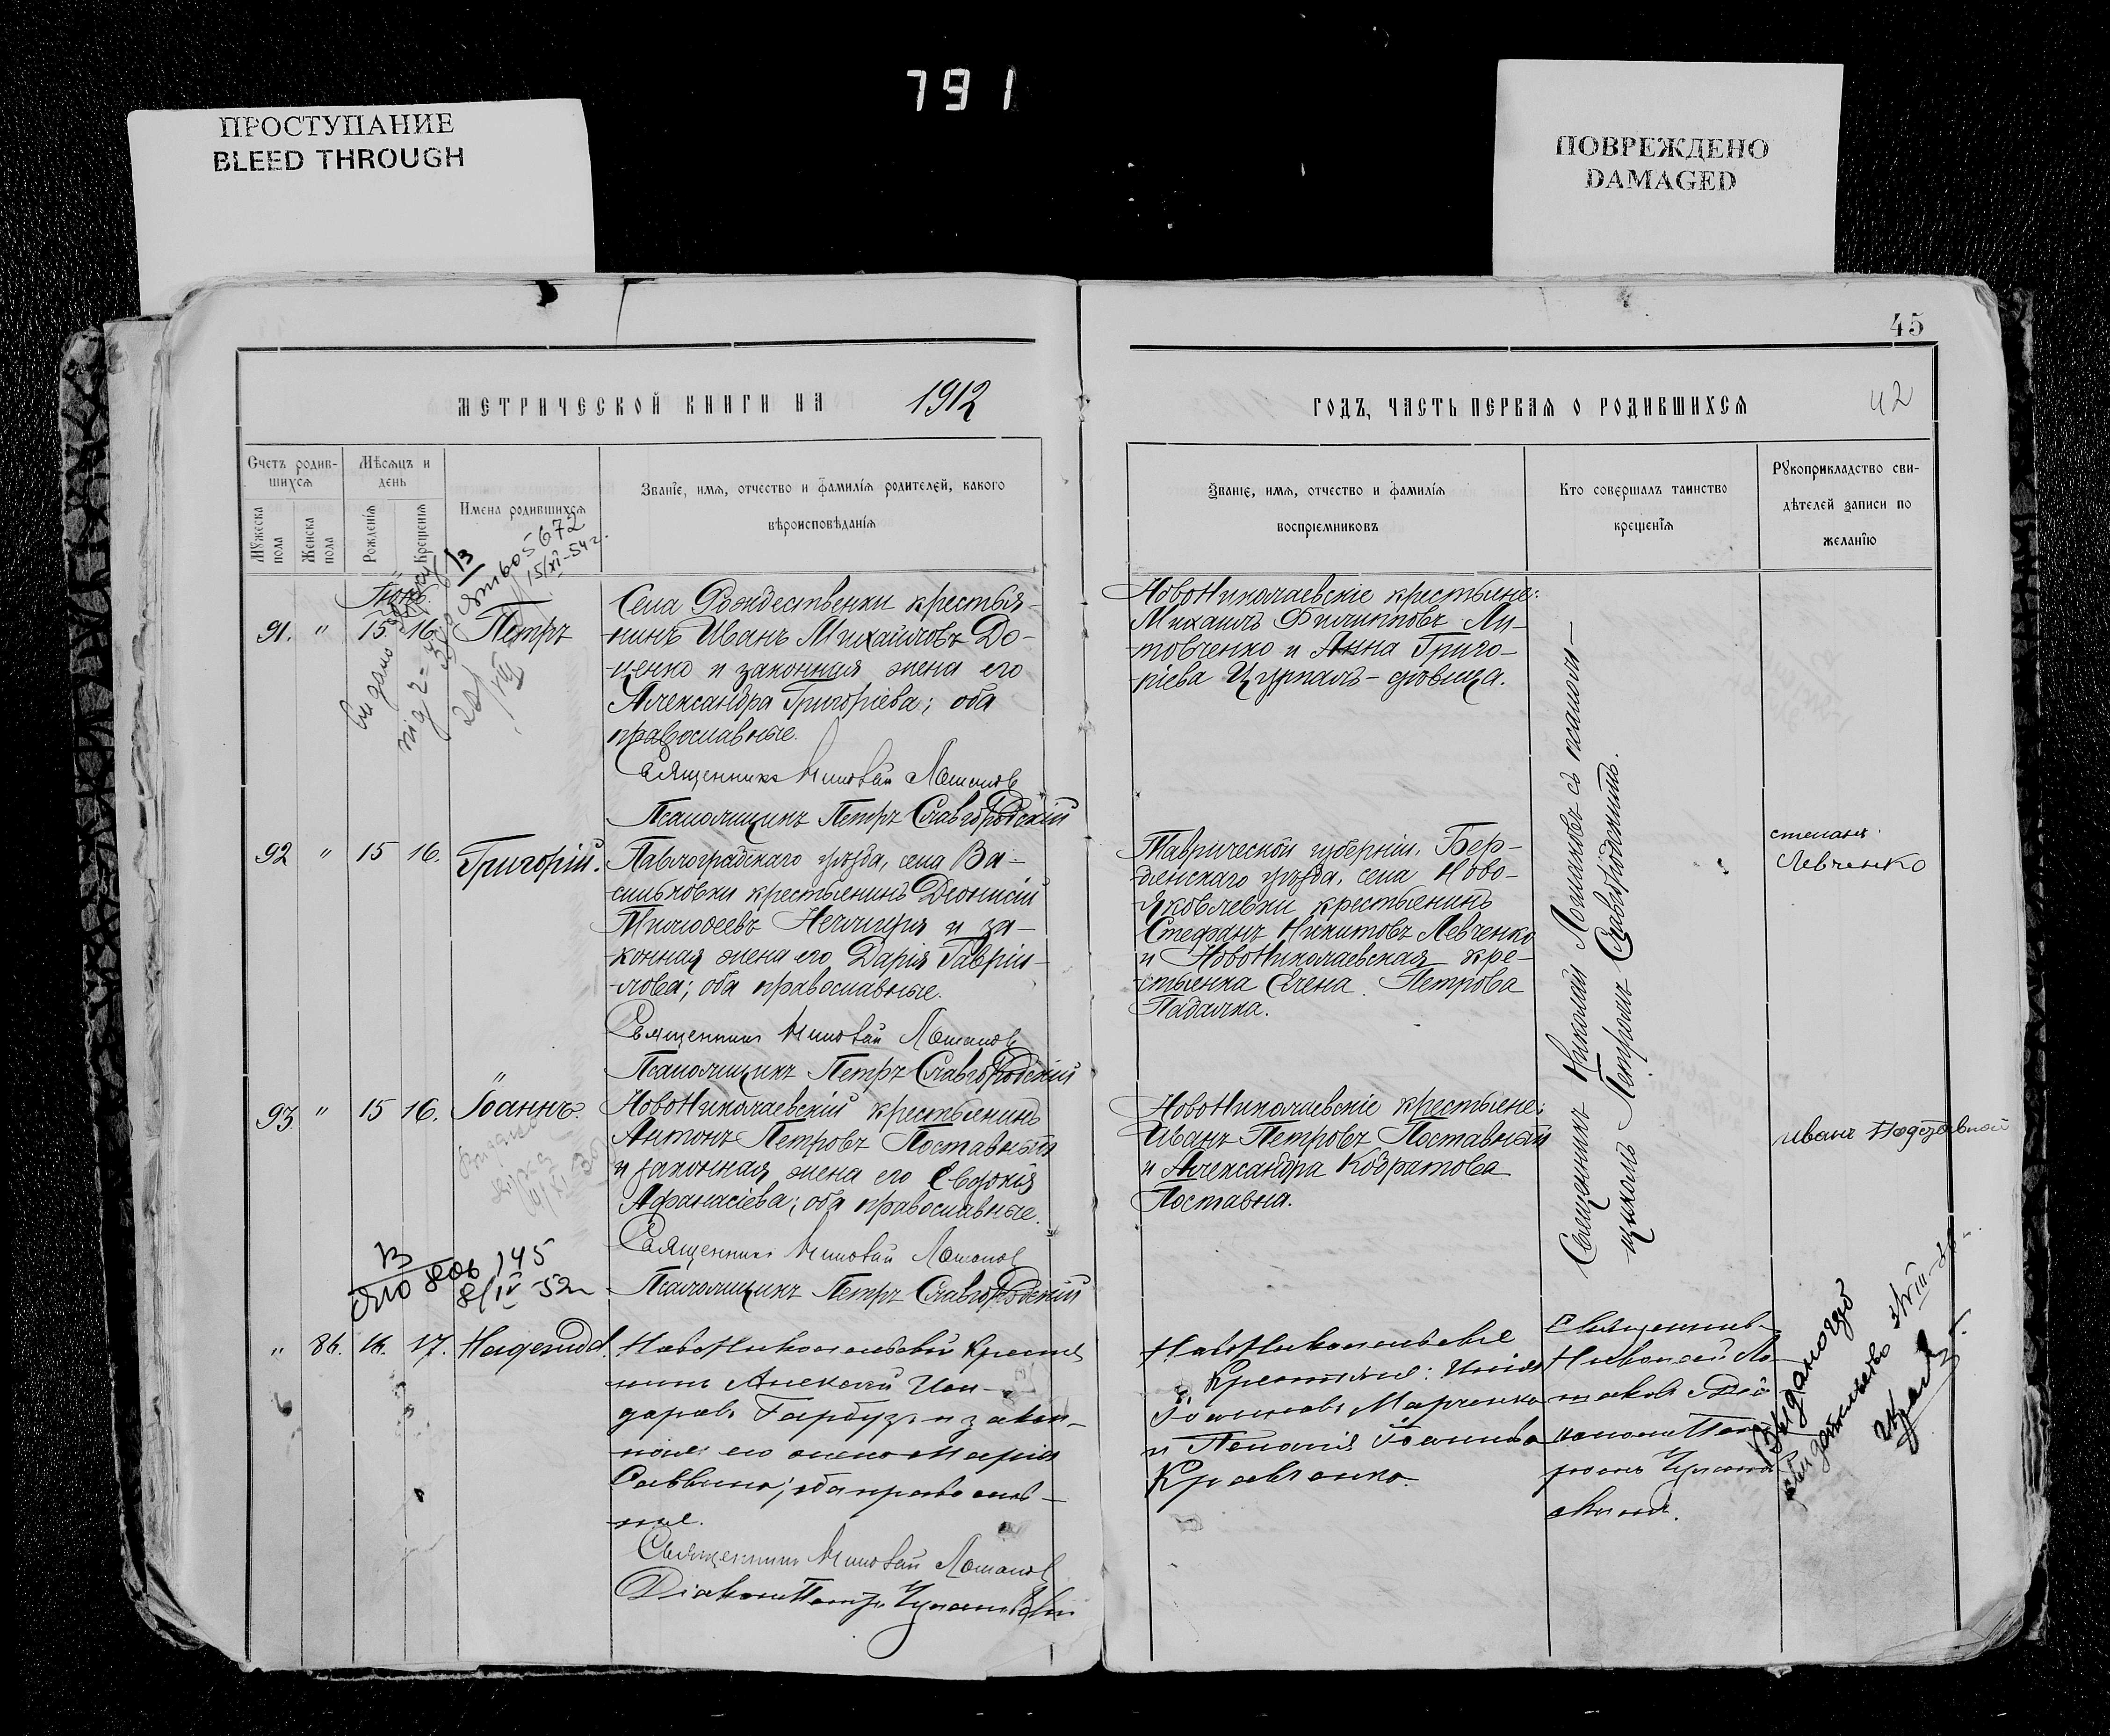 791
ПРОСТУПАНИЕ
BLEED THROUGH
ПОВРЕЖДЕНО
DAMAGED
45
МЕТРИЧЕСКОЙ КНИГИ НА 1912
ГОДЪ, ЧАСТЬ ПЕРВАЯ О РОДИВШИХСЯ
42
Счетъ родив-
шихся
Мужеска пола
Женска пола
Мѣсяцъ и
день
Рожденія
Крещенія
Имена родившихся
Званіе, имя, отчество и фамилія родителей, какого
вѣроисповѣданія
Званіе, имя, отчество и фамилія
воспріемниковъ
Кто совершалъ таинство
крещенія
Рукоприкладство сви-
дѣтелей записи по
желанію
15/XI-54 г.
91. " 15 16. Петръ
Села Рождественки крестья-
нинъ Иванъ Михайловъ До-
ценко и законная жена его
Александра Григоріева; оба
православные.
Священникъ Николай Ломаковъ
Псаломщикъ Петръ Славгородскій
НовоНиколаевскіе крестьяне:
Михаилъ Филипповъ Ли-
товченко и Анна Григо-
ріева Цурпалъ-вдовица.
Священникъ Николай Ломаковъ съ псалом-
щикомъ Петромъ Славгородскимъ.
92 " 15 16. Григорій.
Павлоградскаго уѣзда, села Ва-
сильковки крестьянинъ Діонисій
Тимофеевъ Нечипуря и за-
конная жена его Дарія Гавріи-
лова; оба православные.
Священникъ Николай Ломаковъ
Псаломщикъ Петръ Славгородскій
Таврической губерніи, Бер-
дянскаго уѣзда, села Ново-
Яковлевки крестьянинъ
Стефанъ Никитовъ Левченко
и НовоНиколаевская кре-
стьянка Елена Петрова
Падалка.
степанъ
Левченко
93 " 15 16. Іоаннъ.
НовоНиколаевскій крестьянинъ
Антонъ Петровъ Поставный
и законная жена его Евдокія
Афанасіева; оба православные.
Священникъ Николай Ломаковъ
Псаломщикъ Петръ Славгородскій
НовоНиколаевскіе крестьяне:
Иванъ Петровъ Поставный
и Александра Кодратова
Поставна.
145
8/IV 52 г
" 86. 16. 17. Надежда.
НовоНиколаевскій крестья
нинъ Алексѣй Иси-
доровъ Гарбузъ и закон-
ная его жена Марія
Саввина; оба православ-
ные.
Священникъ Николай Ломаковъ
Діаконъ Петръ
НовоНиколаевскіе
крестьяне:
Іоанновъ Марченко
и Пелагія Іоаннова
Кравченко.
Священникъ
Николай Ло-
маковъ съ Діа-
кономъ Пет-
ромъ